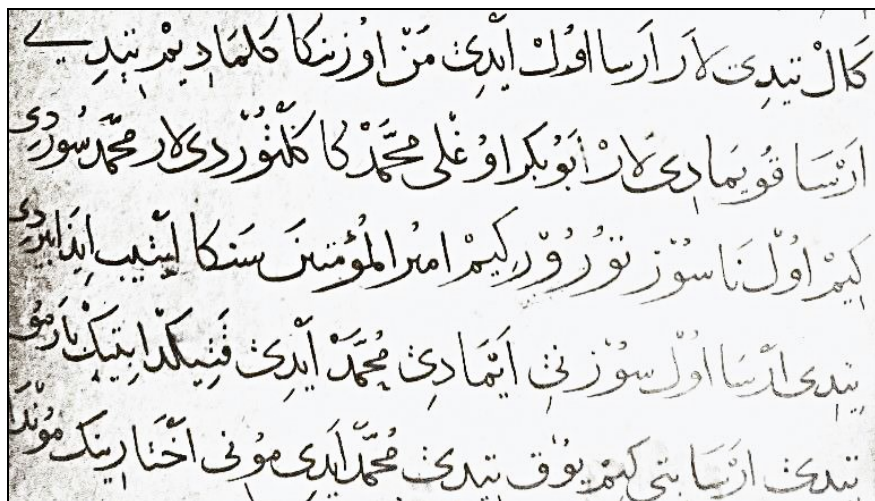 كَالْ تيدِى لاَر اَرسا اوُلْ ايْدِىْ مَنْ اوُزنكا كلمادِيمْ تيدِى
ارْسَا قُويمادِىْ لارْ اَبُو بكر اوُغْلى محمَّدْ كا كَلْتُوْرْدى لار محمَّد سُوردِى
كِيمْ اوُلْ نَا سُوْز تُوْرُوْر كِيمْ امير المُؤمنينَ سَنكا اَيْتيب ايذا بيردِى
تيدى ارْسا اوُلْ سُوْز نِىْ اَيْتمادِىْ مُحمَّدْ اَيْدِىْ قَتِيْكدا بِتيكْ بارمُو
تيدىْ ارْسَا كيمْ يُوْق تيدىْ مُحمَّد اَيدِى مُونى اَخْتارينك مُوْندَا